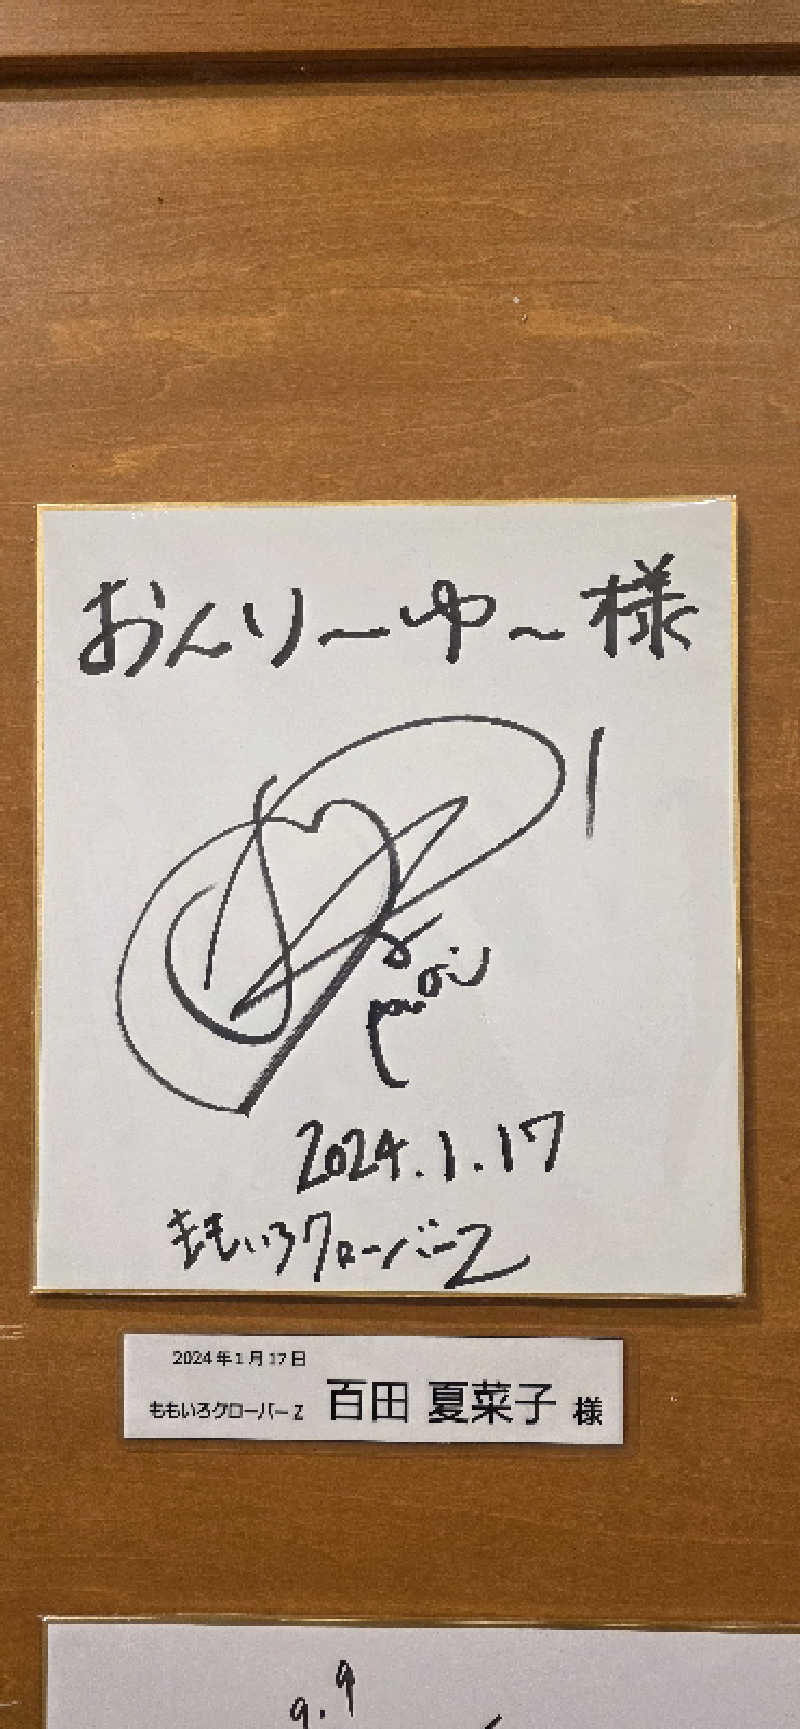 おんりーゆー様
2024.1.17
ももいろクローバーZ
2024年1月17日
ももいろクローバーZ 百田 夏菜子 様
9.9